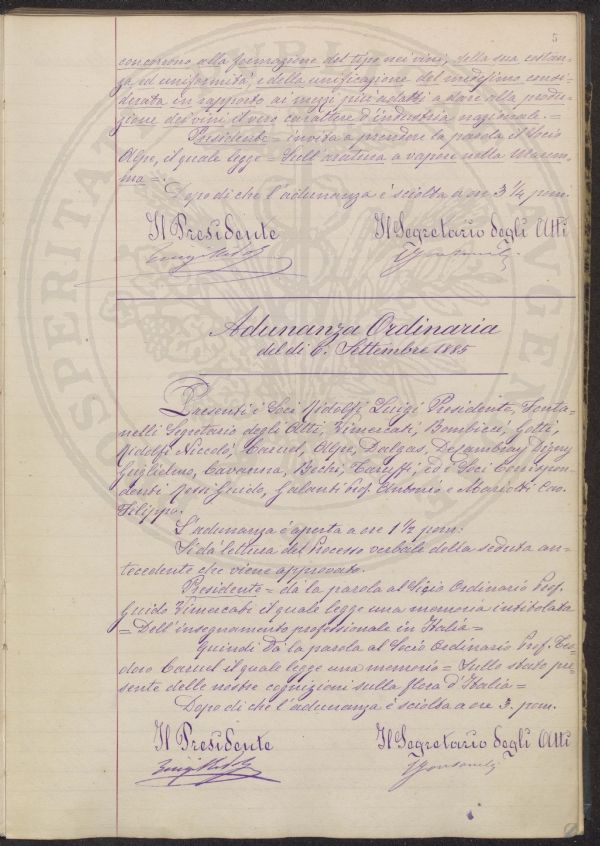 5
concorrono alla formazione del tipo nei vini, della sua costan=
za, ed uniformità, e della unificazione del medesimo consi=
derata in rapporto ai mezzi più adatti a dare alla produ=
zione dei vini il vero carattere d'industria nazionale.=
Presidente = invita a prendere la parola il Socio
Alpe, il quale legge = Sull'aratura a vapore nella Marem=
ma =.
Dopo di che l'adunanza è sciolta a ore 3 1/4 pom.
Il Presidente Il Segretario degli Atti
Adunanza Ordinaria
del dì 6. Settembre 1885
Presenti i Soci Ridolfi Luigi Presidente, Fonta=
nelli Segretario degli Atti, Vimercati, Bombicci, Gotti,
Ridolfi Niccolò, Caruel, Alpe, Dalgas, Dejambray Digny
Guglielmo, Cavanna, Bechi, Taruffi, ed i Soci Corrispon=
denti Rossi Guido, Galanti Prof. Antonio e Mariotti Cav.
Filippo.
L'adunanza è aperta a ore 1 1/2 pom:
Si dà lettura del Processo verbale della seduta an=
tecedente che viene approvato.
Presidente = dà la parola al Socio Ordinario Prof.
Guido Vimercati il quale legge una memoria intitolata
= Dell'insegnamento professionale in Italia =
Quindi dà la parola al Socio Ordinario Prof. Teo=
doro Caruel il quale legge una memoria = Sullo stato pre=
sente delle nostre cognizioni sulla flora d'Italia =
Dopo di che l'adunanza è sciolta a ore 3. pom.
Il Presidente Il Segretario degli Atti